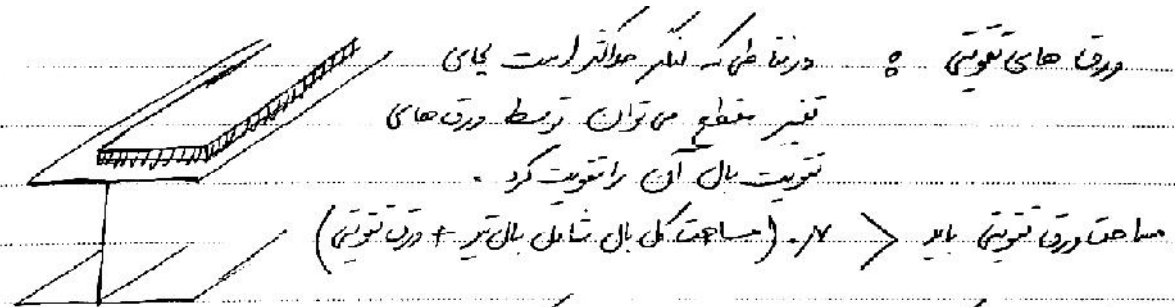 ورق های تقویتی : در نقاطی که لنگر حداکثر است بجای
تغییر مقطع می توان توسط ورق های
تقویت بال آن را تقویت کرد .
مساحت ورق تقویتی باید > ۷۰٪ (مساحت کل بال شامل بال تیر + ورق تقویتی)